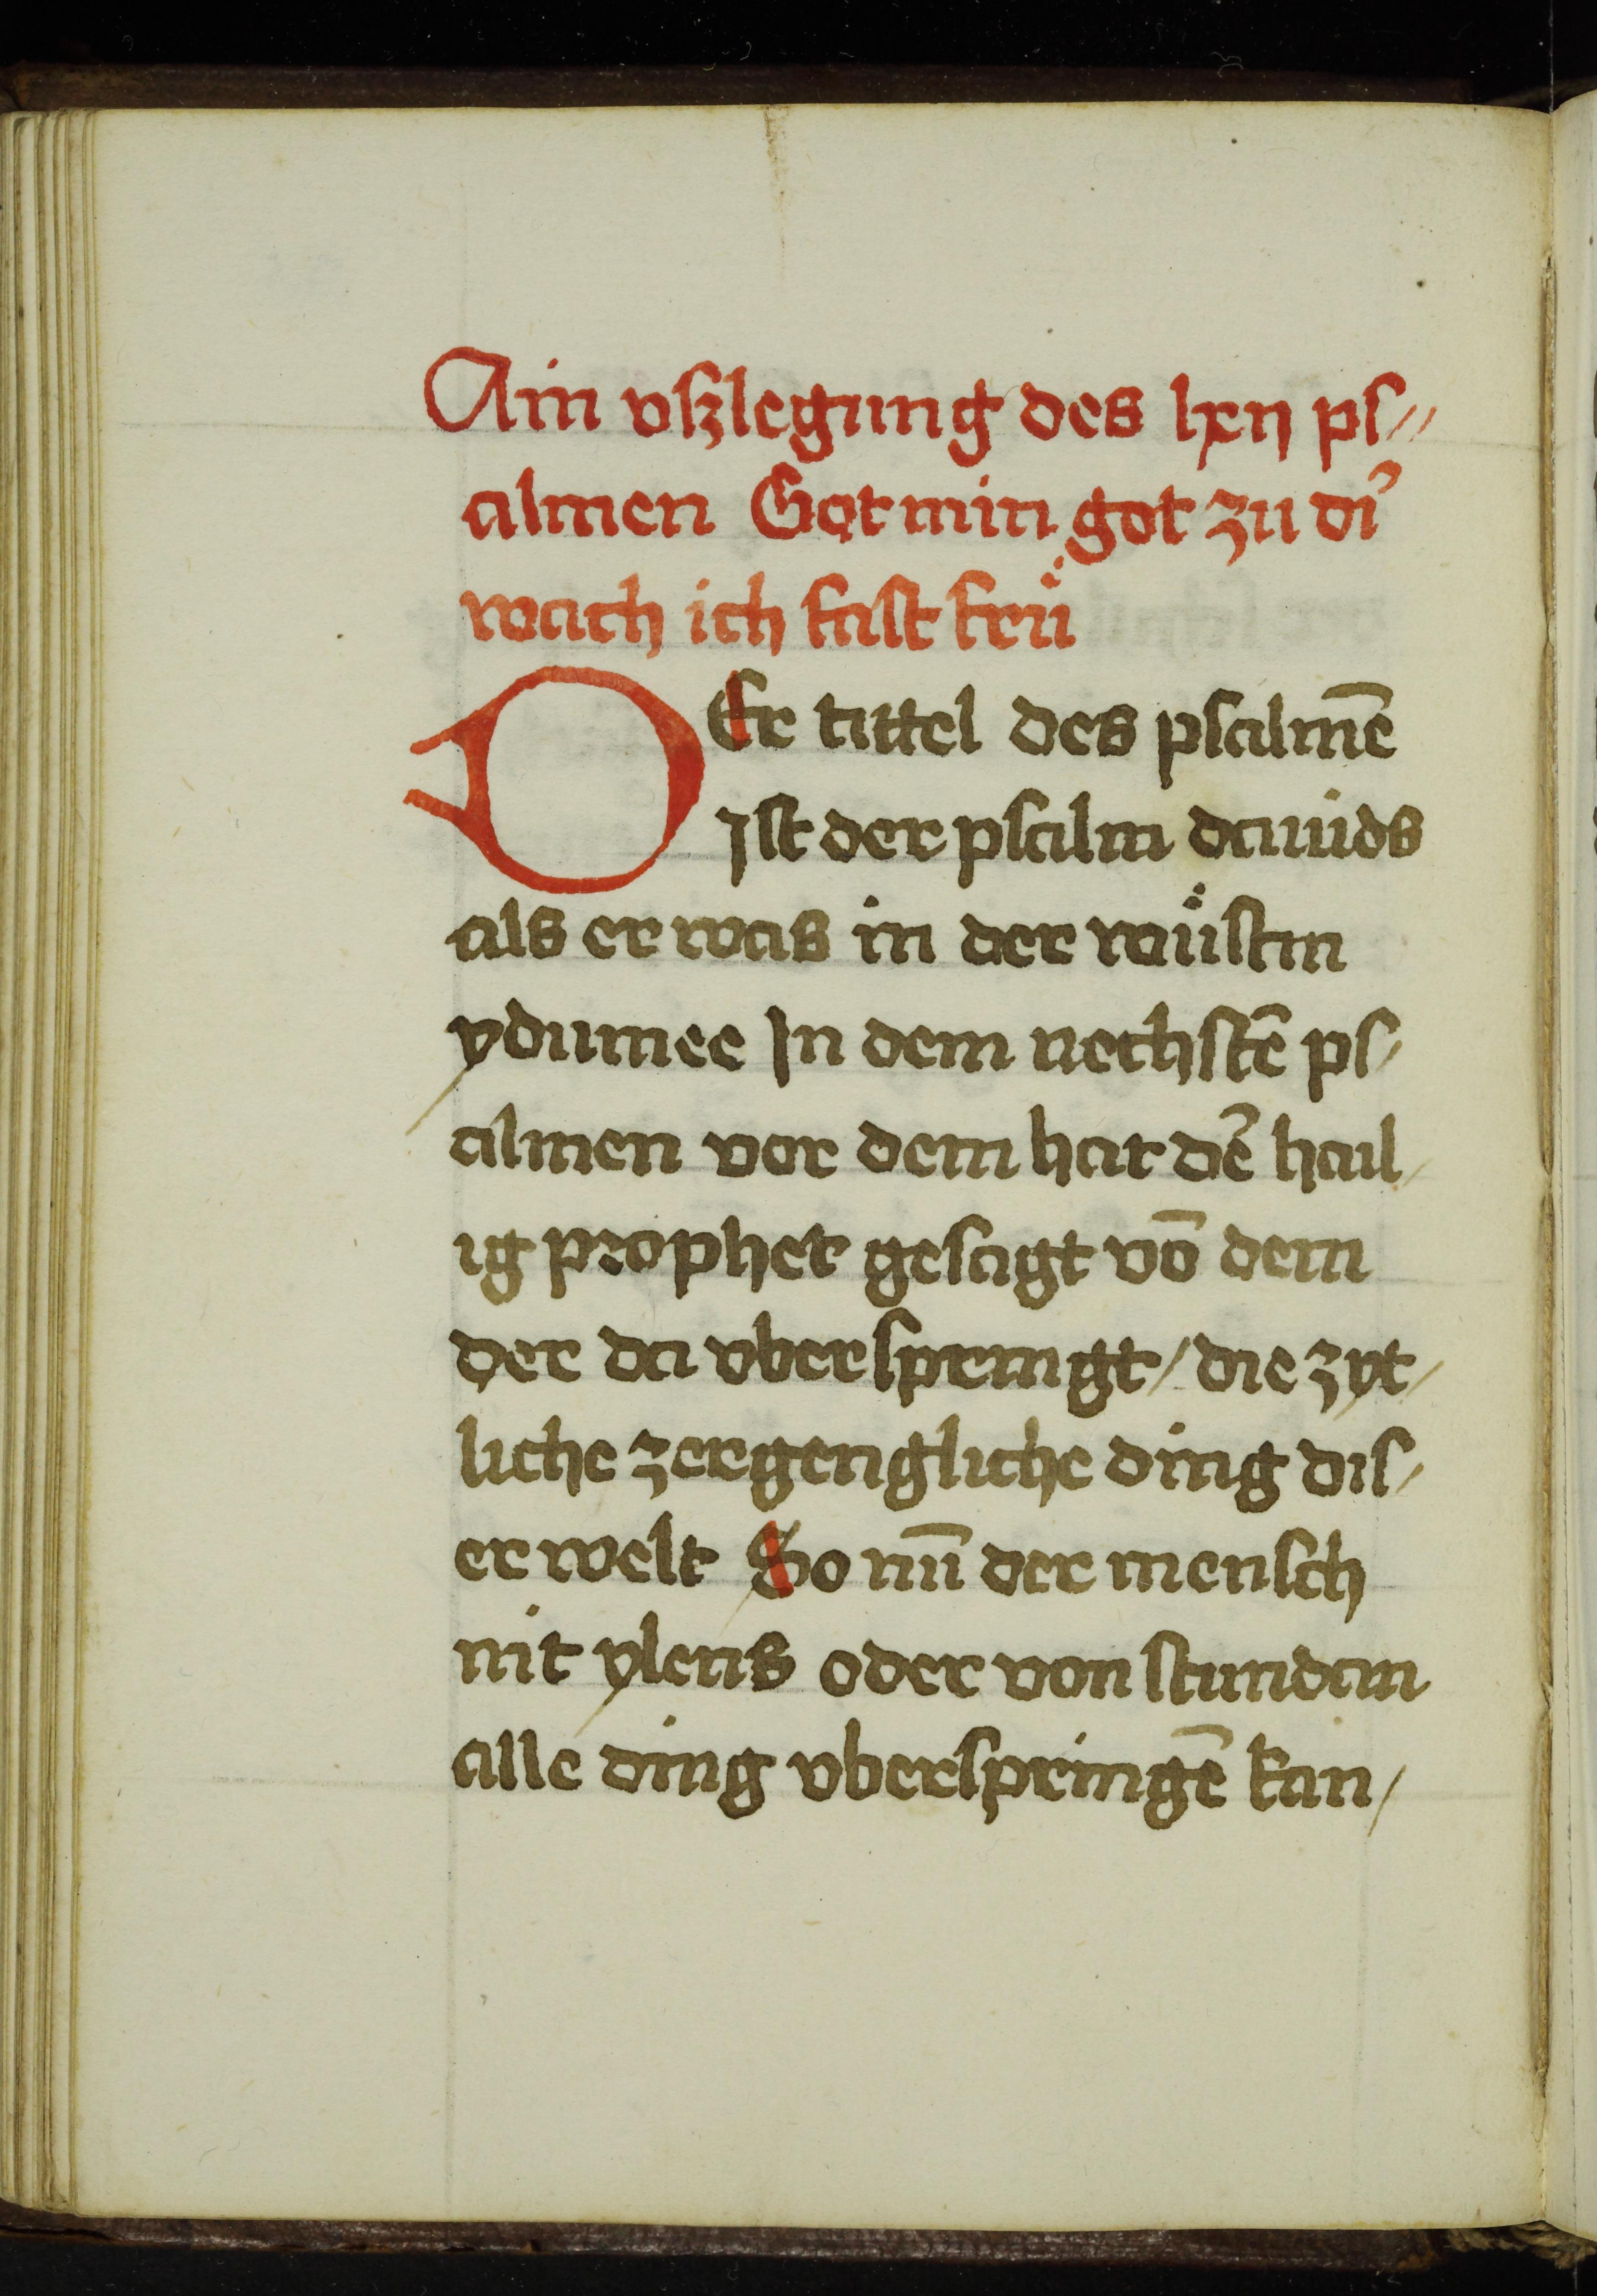 Ain vſzlegung des lxij pſ//
almen Got min got zu di᷑
wach ich faſt fruͤ
DEr tittel des pſalmē
Iſt der pſalm dauids
als er was in der wuͤſtin
ydumee In dem nechſtē pſ/
almen vor dem hat de᷑ hail/
ig prophet geſagt vō dem
der da vberſpringt / die zyt/
liche zergengliche ding diſ/
er welt So nū der menſch
nit ylens oder von ſtundan
alle ding vberſpringē kan /